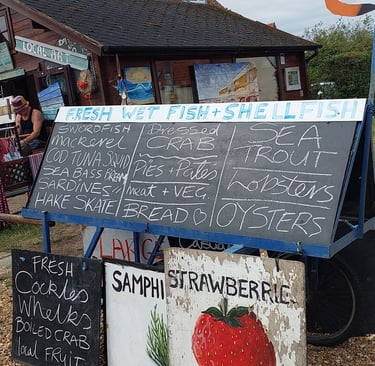 LOCAL ART
FRESH WET FISH + SHELLFISH
SWORDFISH
Mackerel
COD TUNA SQUID
SEA BASS BREAM
SARDINES
HAKE SKATE
Dressed
CRAB
Pies + Pates
meat + VEG
BREAD
SEA
TROUT
Lobsters
OYSTERS
FRESH
Cockles
Whelks
BOILED CRAB
local FRUIT
SAMPHI
STRAWBERRIE